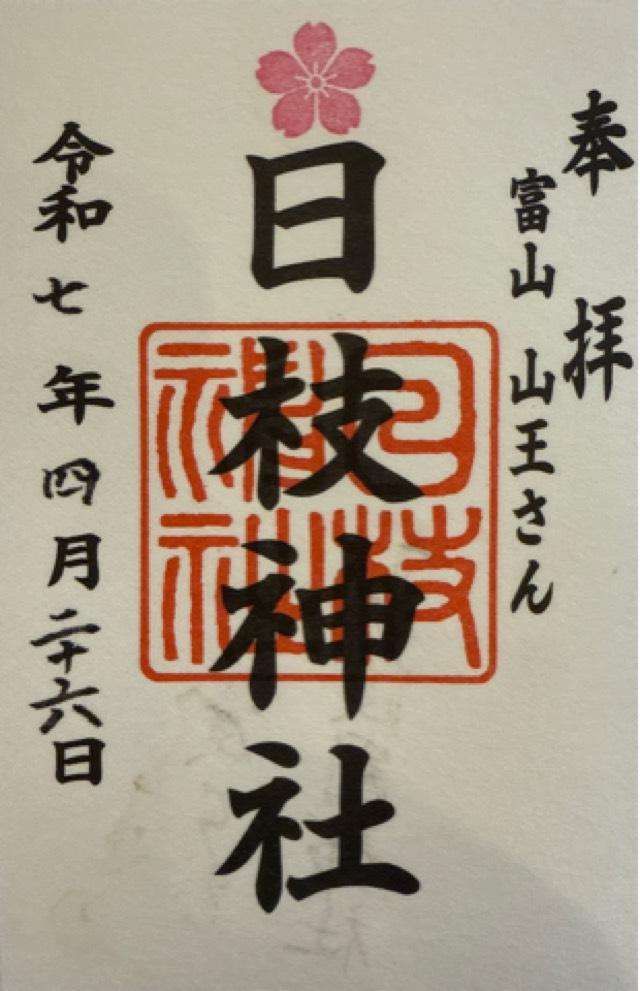 奉拝
富山 山王さん
日枝神社
令和七年四月二十六日